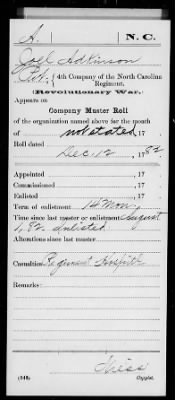 A. N.C.
Joel Adkinson
Pvt., 4th Company of the North Carolina
Regiment.
(Revolutionary War.)
Appears on
Company Muster Roll
of the organization named above for the
month of not stated, 17
Roll dated
Dec. 12, 1782
Appointed , 17
Commissioned , 17
Enlisted , 17
Term of enlistment 18 Mon
Time since last muster or enlistment August
1, 82 Enlisted
Alterations since last muster
Casualties Regiment Hospital
Remarks:
(545) Copyist.